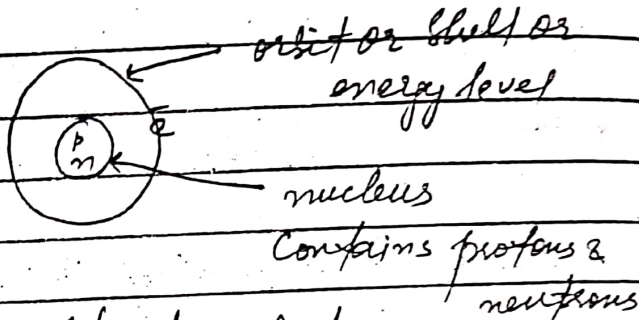 orbit or shell or
energy level
e
p
n
nucleus
Contains protons &
neutrons